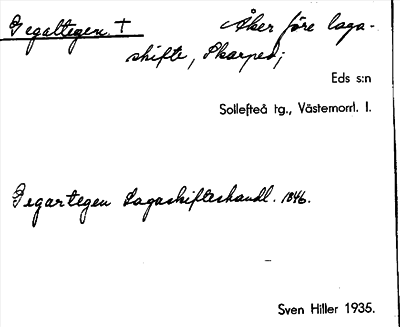 Degaltegen † Åker före laga-
skifte, Skarped;
Eds s:n
Sollefteå tg., Västernorrl. l.
Degartegen Lagaskifteshandl. 1846.
Sven Hiller 1935.